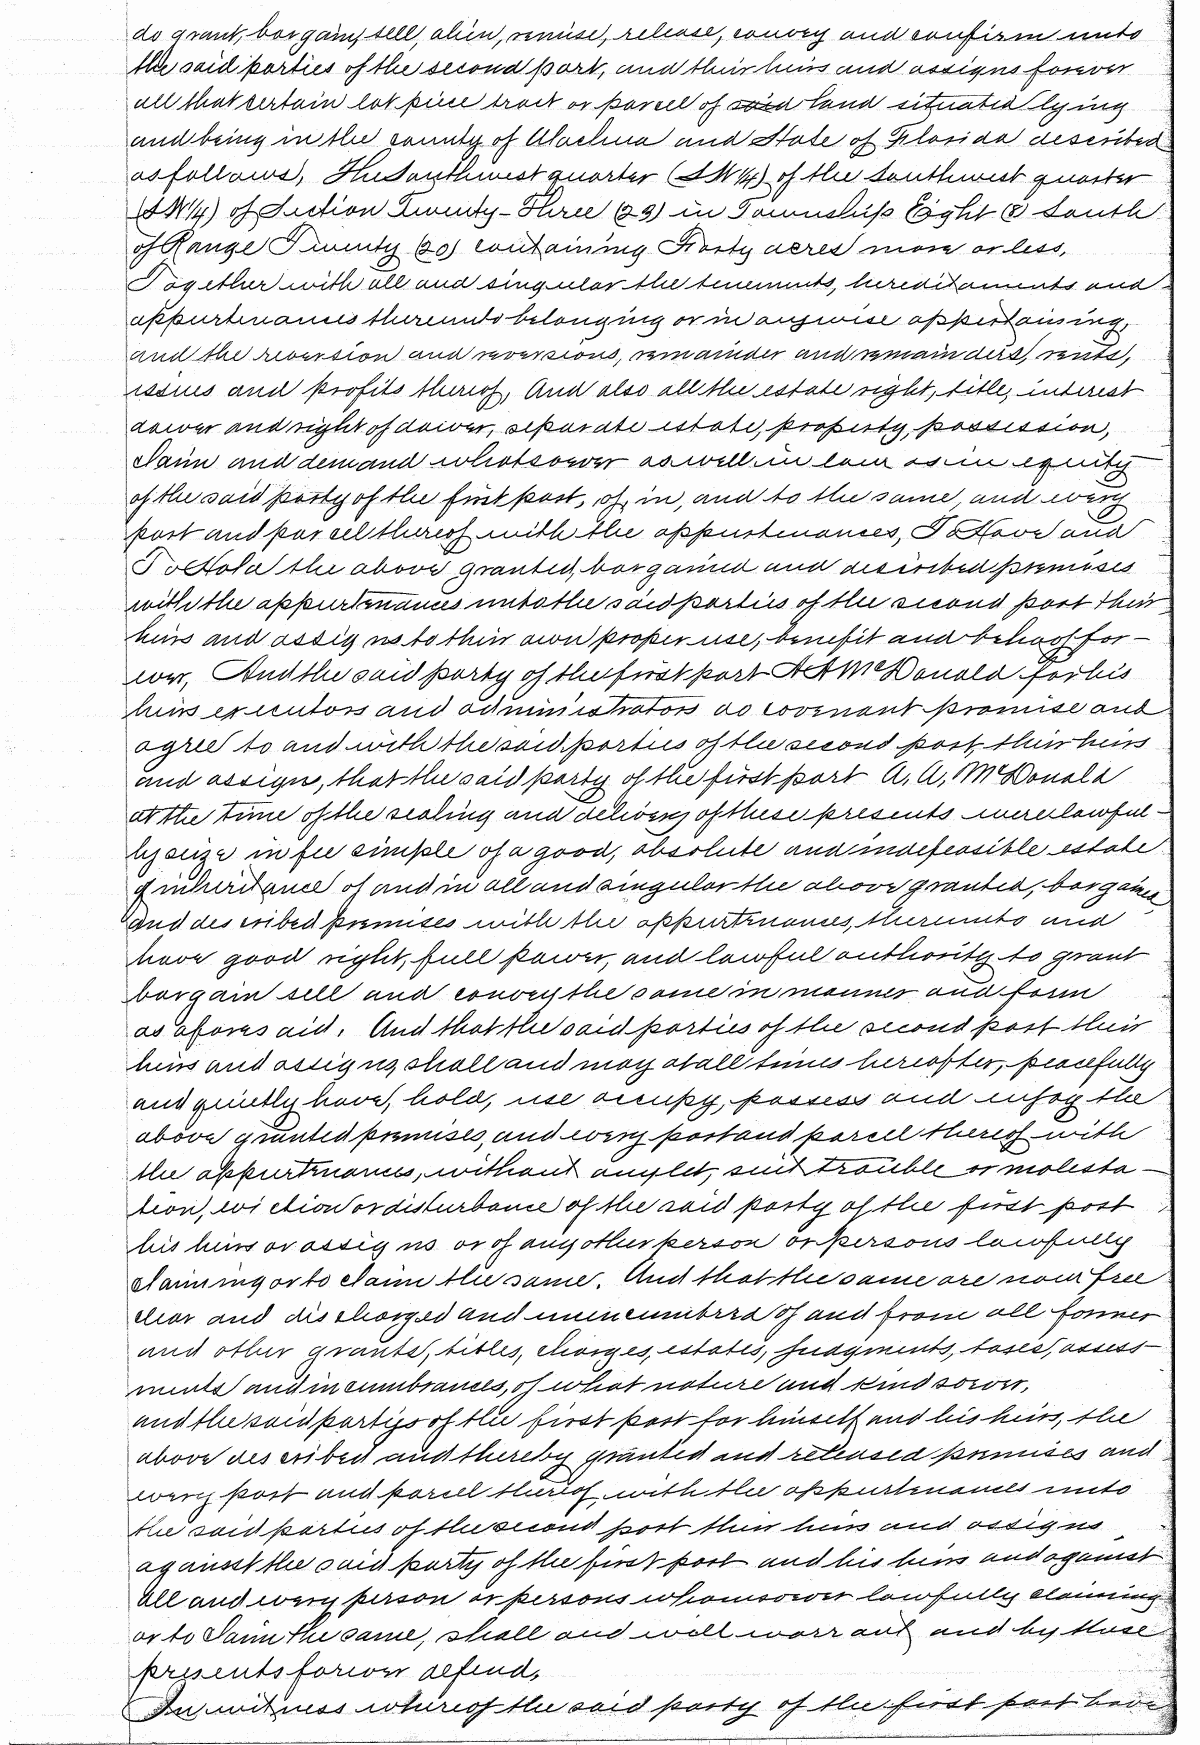 do grant, bargain, sell, alien, remise, release, convey and confirm unto
the said parties of the second part, and their heirs and assigns forever
all that certain lot piece tract or parcel of said land situated lying
and being in the county of Alachua and State of Florida described
as follows, The Southwest quarter (SW 1/4) of the Southwest quarter
(SW 1/4) of Section Twenty-Three (23) in Township Eight (8) South
of Range Twenty (20) containing Forty acres more or less,
Together with all and singular the tenements, hereditaments and
appurtenances thereunto belonging or in anywise appertaining,
and the reversion and reversions, remainder and remainders, rents,
issues and profits thereof, And also all the estate right, title, interest
dower and right of dower, separate estate, property, possession,
Claim and demand whatsoever as well in law as in equity
of the said party of the first part, of, in, and to the same, and every
part and parcel thereof with the appurtenances, To Have and
To Hold the above granted, bargained and described premises
with the appurtenances unto the said parties of the second part their
heirs and assigns to their own proper use, benefit and behoof for-
ever, And the said party of the first part A A McDonald for his
heirs executors and administrators do covenant promise and
agree to and with the said parties of the second part, their heirs
and assigns, that the said party of the first part A. A. McDonald
at the time of the sealing and delivery of these presents were lawful-
ly seize in fee simple of a good, absolute and indefeasible estate
of inheritance of and in all and singular the above granted, bargained
and described premises with the appurtenances, thereunto and
have good right, full power, and lawful authority to grant
bargain sell and convey the same in manner and form
as aforesaid. And that the said parties of the second part their
heirs and assigns, shall and may at all times hereafter, peacefully
and quietly have, hold, use occupy, possess and enjoy the
above granted premises, and every part and parcel thereof with
the appurtenances, without any let, suit trouble or molesta-
tion, eviction or disturbance of the said party of the first part
his heirs or assigns or of any other person or persons lawfully
claiming or to claim the same. And that the same are now free
clear and discharged and unincumbered of and from all former
and other grants, titles, charges, estates, judgments, taxes, assess-
ments and incumbrances, of what nature and kind soever,
and the said partys of the first part for himself and his heirs, the
above described and thereby granted and released premises and
every part and parcel thereof, with the appurtenances unto
the said parties of the second part their heirs and assigns
against the said party of the first part and his heirs and against
all and every person or persons whomsoever lawfully claiming
or to Claim the same, shall and will warrant and by these
presents forever defend,
In witness whereof the said party of the first part have